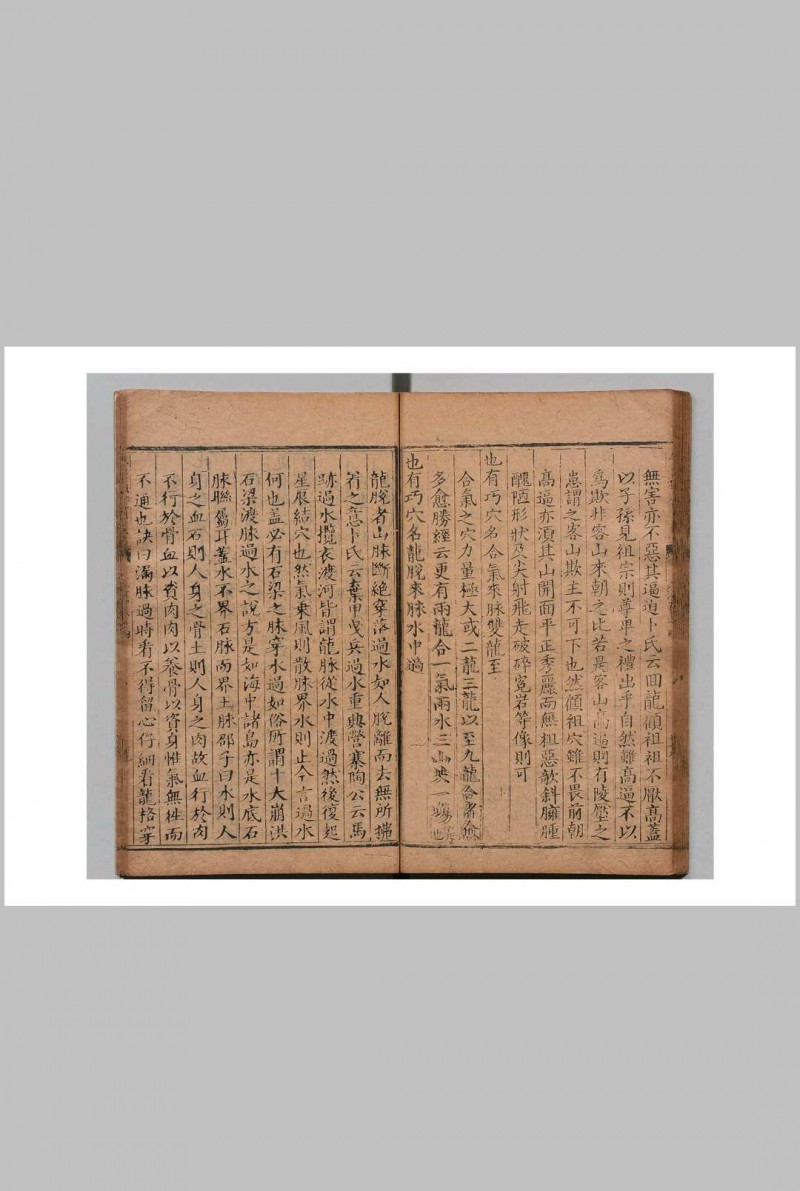 無害亦不惡其逼迫卜氏云回龍顧祖祖不厭高蓋
以子孫見祖宗則尊卑之禮出乎自然雖高逼不以
為欺非客山來朝之比若異客山高逼則有陵壓之
患謂之客山欺主不可下也然顧祖穴雖不畏前朝
高逼亦須其山開面平正秀麗而無粗惡欹斜臃腫
醜陋形狀及尖射飛走破碎冤岩等像則可
也有巧穴名合氣來脉雙龍至
合氣之穴力量極大或二龍三龍以至九龍合者愈
多愈勝經云更有兩龍合一氣兩水三山共一場也
也有巧穴名龍脫來脉水中過
龍脫者山脉斷絕穿落過水如人脫離而去無所揣
着之意卜氏云棄甲曳兵過水重興營寨陶公云馬
跡過水攬衣渡河皆謂龍脉從水中渡過然後復起
星辰結穴也然氣乘風則散脉界水則止今言過水
何也蓋必有石梁之脉穿水過如俗所謂十大崩洪
石梁渡脉過水之說方是如海中諸島亦是水底石
脉聯屬耳蓋水不界石脉而界土脉郡子曰水則人
身之血石則人身之骨土則人身之肉故血行於肉
不行於骨血以資肉肉以養骨以資身惟氣無往而
不通也訣曰滿脉過時看不得留心仔細看龍格穿